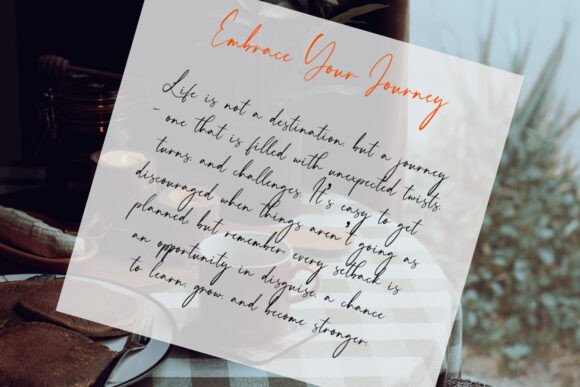 Embrace Your Journey
Life is not a destination, but a journey
- one that is filled with unexpected twists,
turns, and challenges. It's easy to get
discouraged when things aren't going as
planned, but remember, every setback is
an opportunity in disguise, a chance
to learn, grow, and become stronger.